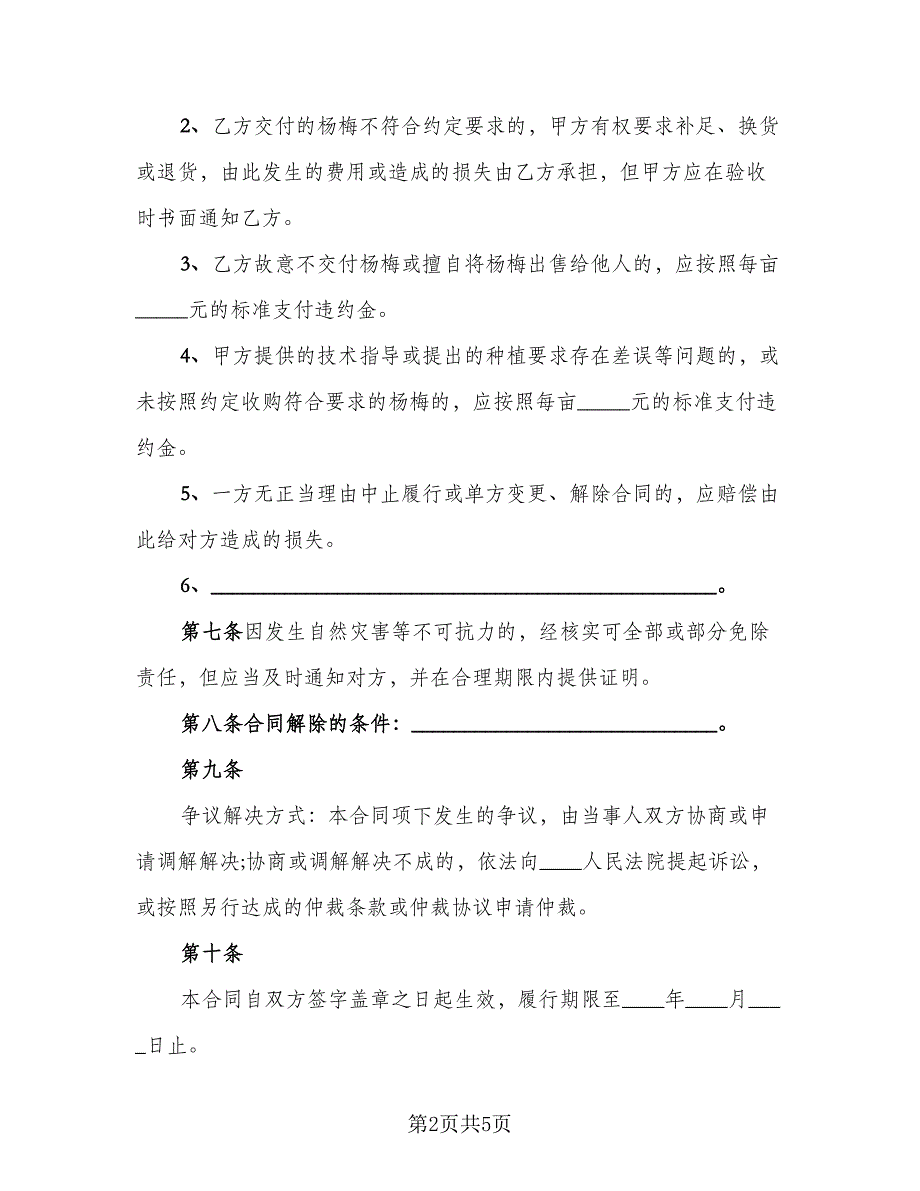 2、乙方交付的杨梅不符合约定要求的，甲方有权要求补足、换货
或退货，由此发生的费用或造成的损失由乙方承担，但甲方应在验收
时书面通知乙方。
3、乙方故意不交付杨梅或擅自将杨梅出售给他人的，应按照每亩
_____元的标准支付违约金。
4、甲方提供的技术指导或提出的种植要求存在差误等问题的，或
未按照约定收购符合要求的杨梅的，应按照每亩_____元的标准支付违
约金。
5、一方无正当理由中止履行或单方变更、解除合同的，应赔偿由
此给对方造成的损失。
6、________________________________________________。
第七条因发生自然灾害等不可抗力的，经核实可全部或部分免除
责任，但应当及时通知对方，并在合理期限内提供证明。
第八条合同解除的条件：_____________________________。
第九条
争议解决方式：本合同项下发生的争议，由当事人双方协商或申
请调解解决;协商或调解解决不成的，依法向____人民法院提起诉讼，
或按照另行达成的仲裁条款或仲裁协议申请仲裁。
第十条
本合同自双方签字盖章之日起生效，履行期限至____年____月___
_日止。
第2页共5页